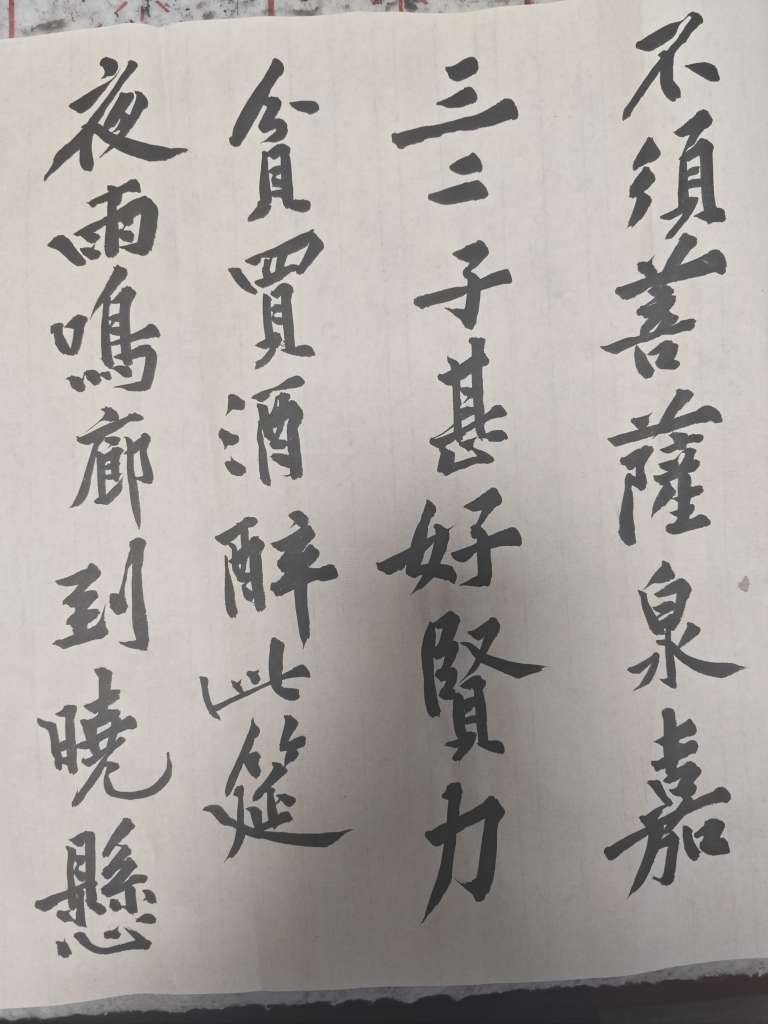 不須菩薩泉嘉
三二子甚好賢力
貧買酒醉此筵
夜雨鳴廊到曉懸